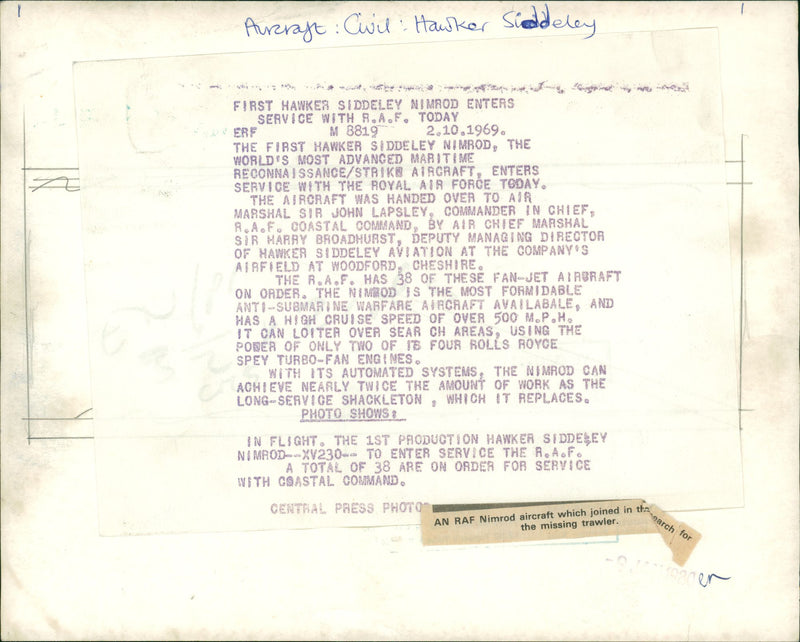 Aircraft : Civil : Hawker Siddeley
FIRST HAWKER SIDDELEY NIMROD ENTERS
SERVICE WITH R.A.F. TODAY
ERF M 8819 2.10.1969.
THE FIRST HAWKER SIDDELEY NIMROD, THE
WORLD'S MOST ADVANCED MARITIME
RECONNAISSANCE/STRIKE AIRCRAFT, ENTERS
SERVICE WITH THE ROYAL AIR FORCE TODAY.
THE AIRCRAFT WAS HANDED OVER TO AIR
MARSHAL SIR JOHN LAPSLEY, COMMANDER IN CHIEF,
R.A.F. COASTAL COMMAND, BY AIR CHIEF MARSHAL
SIR HARRY BROADHURST, DEPUTY MANAGING DIRECTOR
OF HAWKER SIDDELEY AVIATION AT THE COMPANY'S
AIRFIELD AT WOODFORD, CHESHIRE.
THE R.A.F. HAS 38 OF THESE FAN-JET AIRCRAFT
ON ORDER. THE NIMROD IS THE MOST FORMIDABLE
ANTI-SUBMARINE WARFARE AIRCRAFT AVAILABALE, AND
HAS A HIGH CRUISE SPEED OF OVER 500 M.P.H.
IT CAN LOITER OVER SEAR CH AREAS, USING THE
POWER OF ONLY TWO OF FOUR ROLLS ROYCE
SPEY TURBO-FAN ENGINES.
WITH ITS AUTOMATED SYSTEMS, THE NIMROD CAN
ACHIEVE NEARLY TWICE THE AMOUNT OF WORK AS THE
LONG-SERVICE SHACKLETON , WHICH IT REPLACES.
PHOTO SHOWS:
IN FLIGHT. THE 1ST PRODUCTION HAWKER SIDDELEY
NIMROD--XV230-- TO ENTER SERVICE THE R.A.F.
A TOTAL OF 38 ARE ON ORDER FOR SERVICE
WITH COASTAL COMMAND.
CENTRAL PRESS PHOTO
AN RAF Nimrod aircraft which joined in the search for
the missing trawler.